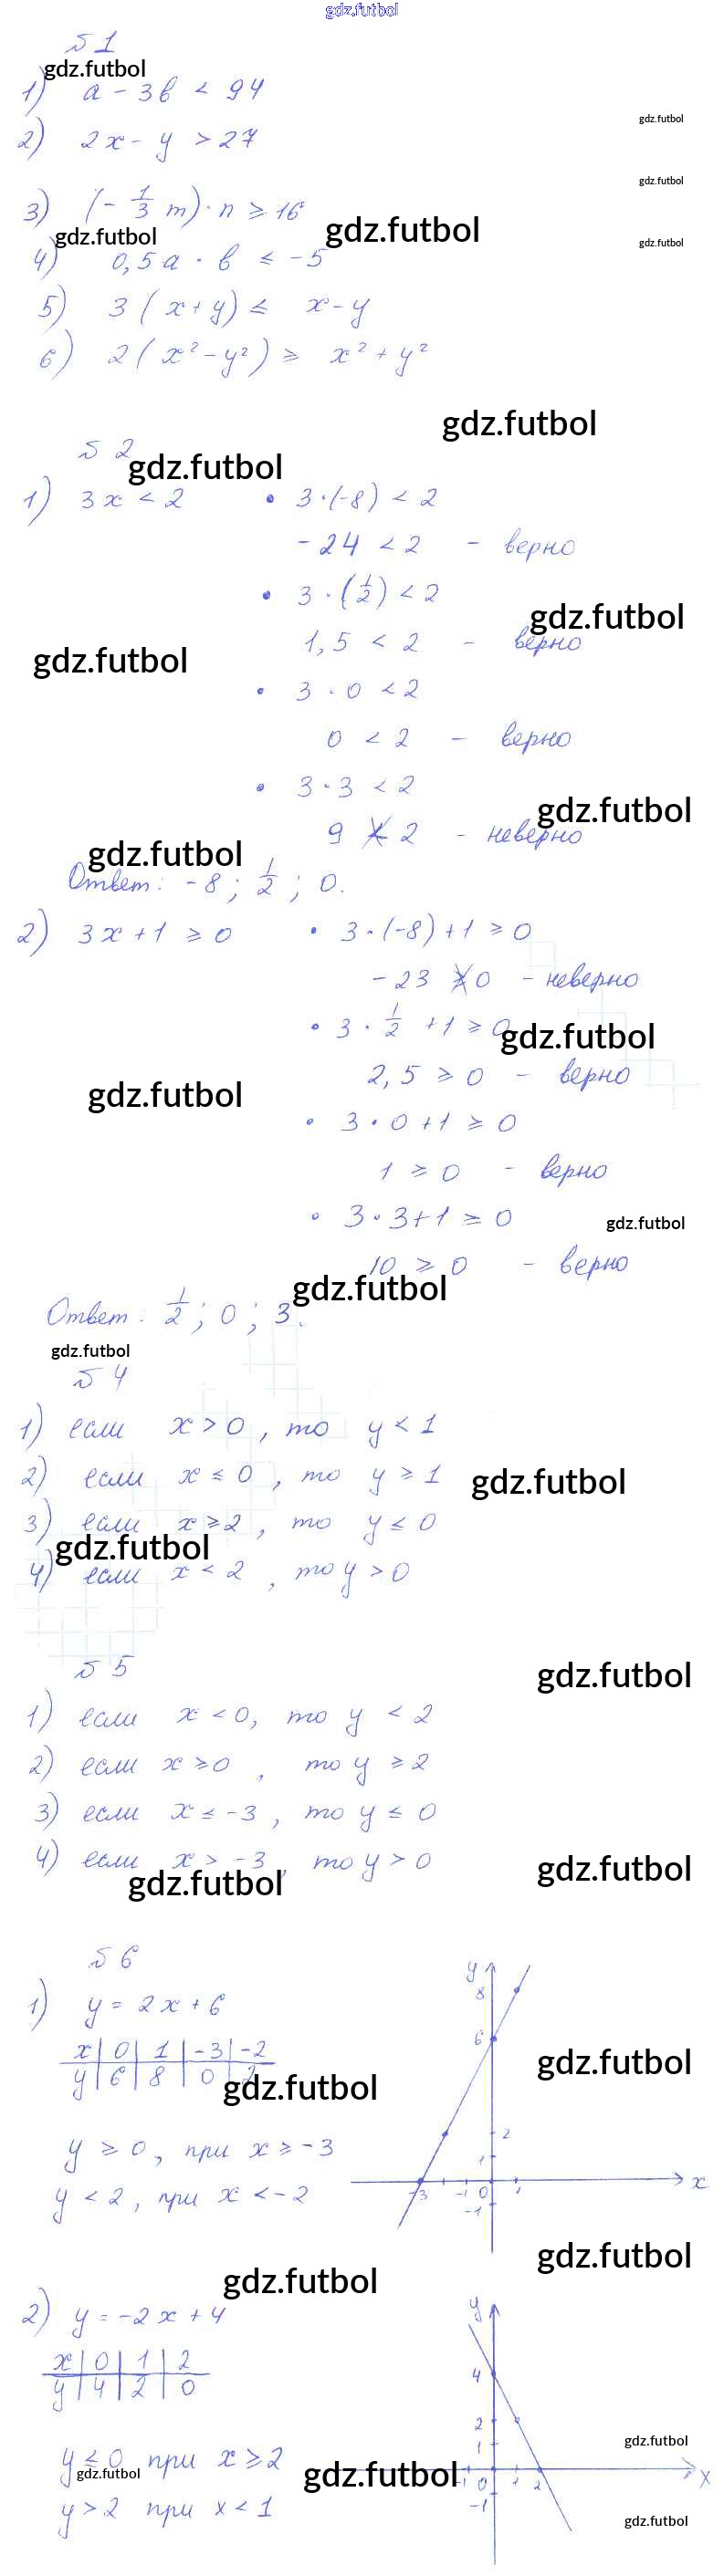 gdz.futbol
№ 1
gdz.futbol
1) a - 3b < 94
gdz.futbol
2) 2x - y > 27
gdz.futbol
3) (- 1/3 m) · n ≥ 16
gdz.futbol
gdz.futbol
gdz.futbol
4) 0,5a · b ≤ -5
5) 3 (x + y) ≤ x - y
6) 2 (x² - y²) ≥ x² + y²
gdz.futbol
№ 2
gdz.futbol
1) 3x < 2 • 3·(-8) < 2
-24 < 2 - верно
• 3·(1/2) < 2
gdz.futbol
1,5 < 2 - верно
gdz.futbol
• 3·0 < 2
0 < 2 - верно
• 3·3 < 2
gdz.futbol
9 ≮ 2 - неверно
gdz.futbol
Ответ: -8; 1/2; 0.
2) 3x + 1 ≥ 0 • 3·(-8) + 1 ≥ 0
-23 ≱ 0 - неверно
• 3·1/2 + 1 ≥ 0
gdz.futbol
2,5 ≥ 0 - верно
gdz.futbol
• 3·0 + 1 ≥ 0
1 ≥ 0 - верно
• 3·3 + 1 ≥ 0
gdz.futbol
10 ≥ 0 - верно
gdz.futbol
Ответ: 1/2; 0; 3.
gdz.futbol
№ 4
1) если x > 0, то y < 1
2) если x ≤ 0, то y ≥ 1
gdz.futbol
3) если x ≥ 2, то y ≤ 0
gdz.futbol
4) если x < 2, то y > 0
№ 5
gdz.futbol
1) если x < 0, то y < 2
2) если x ≥ 0, то y ≥ 2
3) если x ≤ -3, то y ≤ 0
4) если x > -3, то y > 0
gdz.futbol
gdz.futbol
№ 6
1) y = 2x + 6
x | 0 | 1 | -3 | -2
y | 6 | 8 | 0 | 2
gdz.futbol
gdz.futbol
y ≥ 0, при x ≥ -3
y < 2, при x < -2
y
8
6
2
1
-3 -1 0 1 x
-1
gdz.futbol
gdz.futbol
2) y = -2x + 4
x | 0 | 1 | 2
y | 4 | 2 | 0
y ≤ 0 при x ≥ 2
gdz.futbol
y > 2 при x < 1
y
4
2
1
gdz.futbol
gdz.futbol
-1 0 1 2 x
-1
gdz.futbol